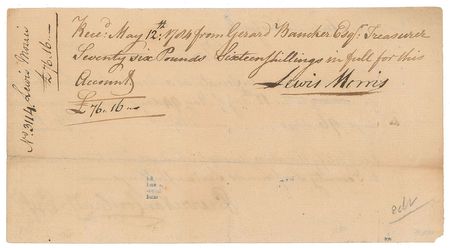 Rec.d May 12.th 1784 from Gerard Bancker Esq.r Treasurer
Seventy six Pounds Sixteen shillings in full for this
Account
£76.16—
Lewis Morris
No. 3114. Lewis Morris
£76.16—